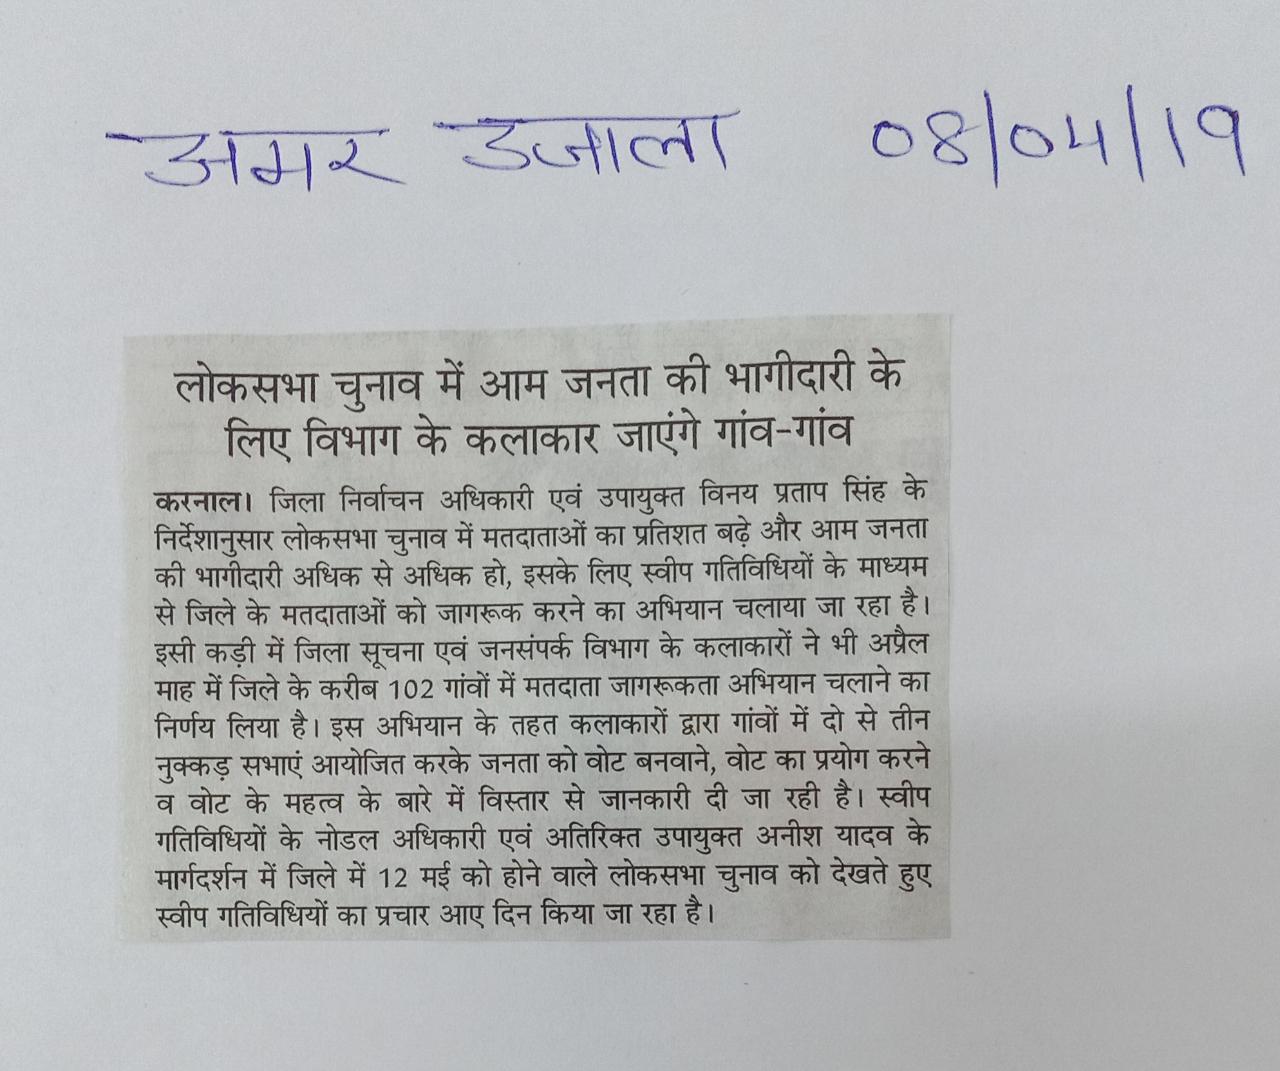 अमर उजाला 08/04/19
लोकसभा चुनाव में आम जनता की भागीदारी के
लिए विभाग के कलाकार जाएंगे गांव-गांव
करनाल। जिला निर्वाचन अधिकारी एवं उपायुक्त विनय प्रताप सिंह के
निर्देशानुसार लोकसभा चुनाव में मतदाताओं का प्रतिशत बढ़े और आम जनता
की भागीदारी अधिक से अधिक हो, इसके लिए स्वीप गतिविधियों के माध्यम
से जिले के मतदाताओं को जागरूक करने का अभियान चलाया जा रहा है।
इसी कड़ी में जिला सूचना एवं जनसंपर्क विभाग के कलाकारों ने भी अप्रैल
माह में जिले के करीब 102 गांवों में मतदाता जागरूकता अभियान चलाने का
निर्णय लिया है। इस अभियान के तहत कलाकारों द्वारा गांवों में दो से तीन
नुक्कड़ सभाएं आयोजित करके जनता को वोट बनवाने, वोट का प्रयोग करने
व वोट के महत्व के बारे में विस्तार से जानकारी दी जा रही है। स्वीप
गतिविधियों के नोडल अधिकारी एवं अतिरिक्त उपायुक्त अनीश यादव के
मार्गदर्शन में जिले में 12 मई को होने वाले लोकसभा चुनाव को देखते हुए
स्वीप गतिविधियों का प्रचार आए दिन किया जा रहा है।